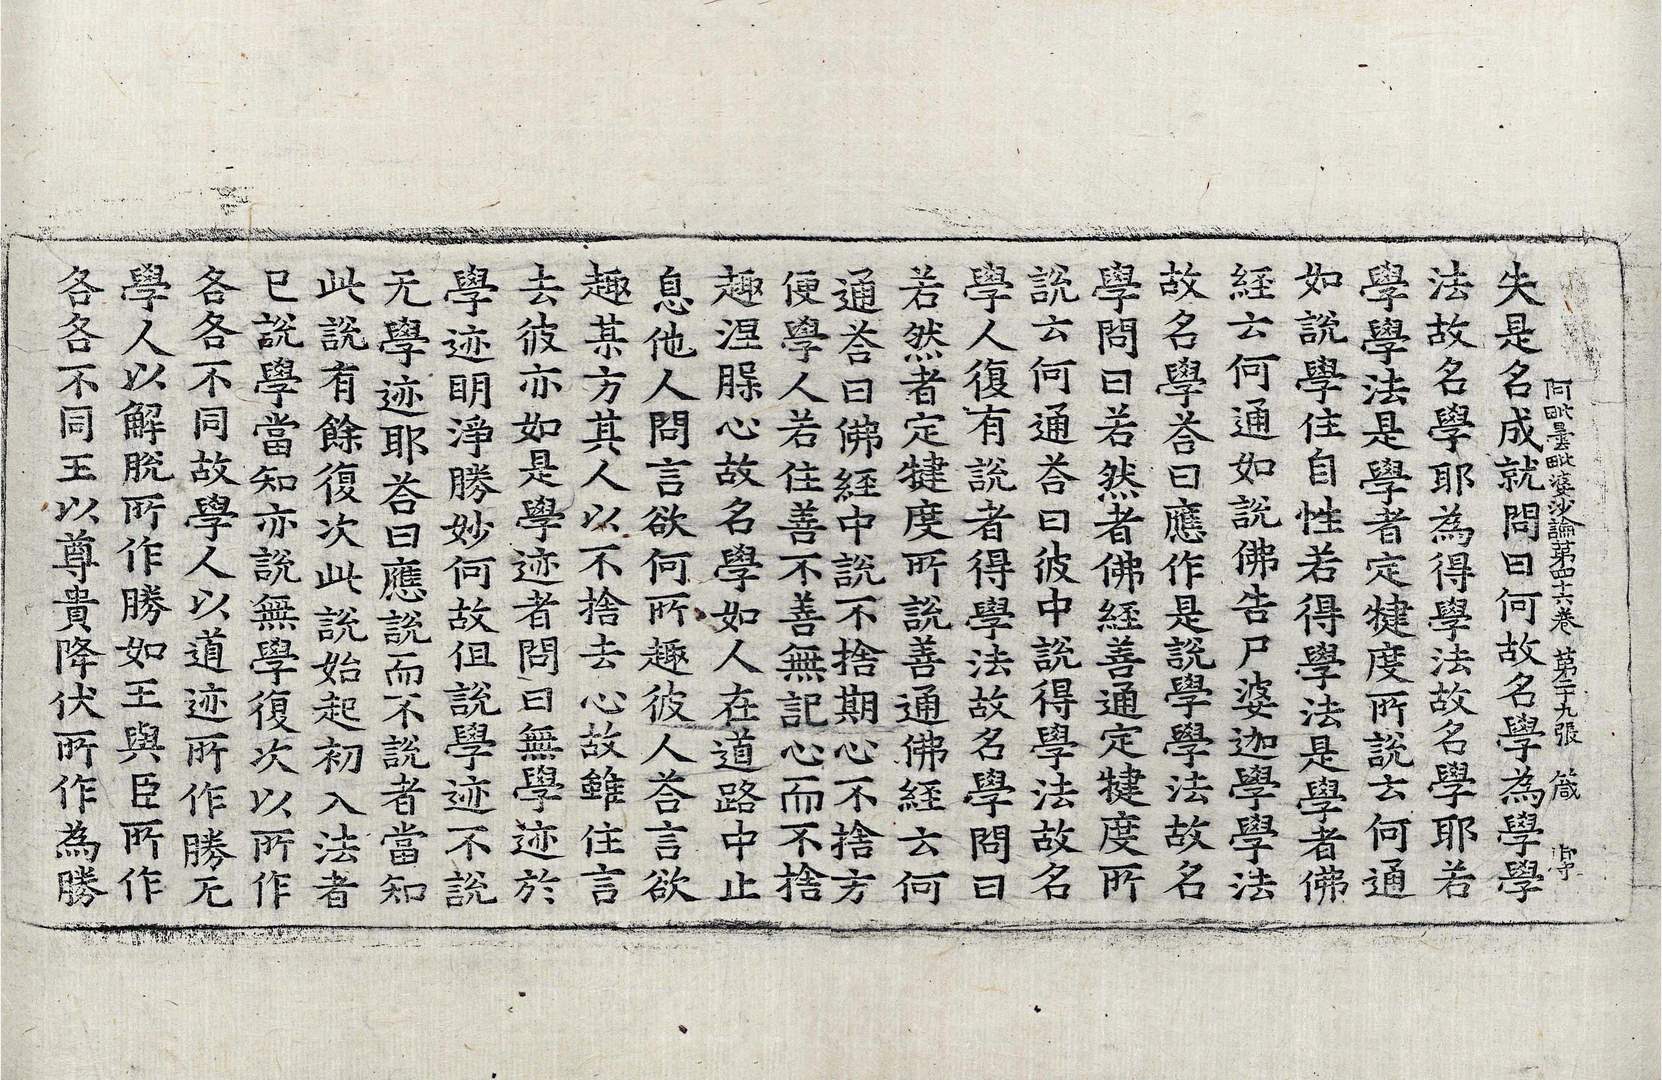 阿毗曇毗婆沙論第四十六卷 第二十九張 箴
失是名成就問曰何故名學為學學
法故名學耶為得學法故名學耶若
學學法是學者定犍度所說云何通
如說學住自性若得學法是學者佛
経云何通如說佛告尸婆迦學學法
故名學荅曰應作是說學學法故名
學問曰若然者佛經善通定犍度所
說云何通荅曰彼中說得學法故名
學人復有說者得學法故名學問曰
若然者定犍度所說善通佛經云何
通荅曰佛経中說不捨期心不捨方
便學人若住善不善無記心而不捨
趣涅槃心故名學如人在道路中止
息他人問言欲何所趣彼人荅言欲
趣某方其人以不捨去心故雖住言
去彼亦如是學迹者問曰無學迹於
學迹明淨勝妙何故但說學迹不說
无學迹耶荅曰應說而不說者當知
此說有餘復次此說始起初入法者
已說學當知亦說無學復次以所作
各各不同故學人以道迹所作勝无
學人以解脫所作勝如王與臣所作
各各不同王以尊貴降伏所作為勝